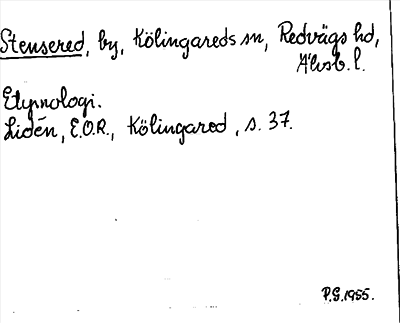 Stensered, by, Kölingareds sn, Redvägs hd,
Älvsb. l.
Etymologi.
Lidén, E.O.R., Kölingared, s. 37.
P.G. 1955.